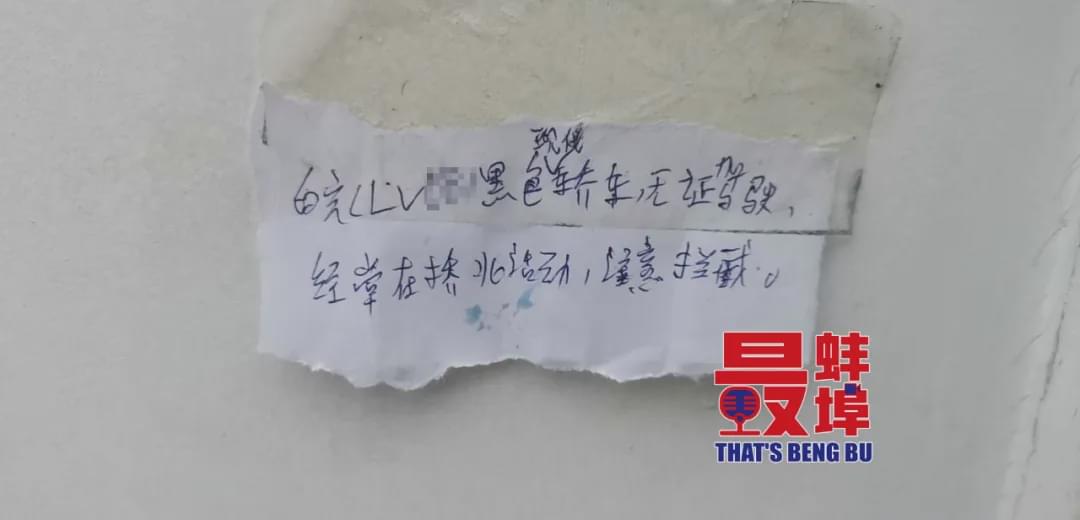 现代
皖CLV黑色轿车,无证驾驶,
经常在桥北活动,注意拦截。
最蚌埠
THAT'S BENG BU